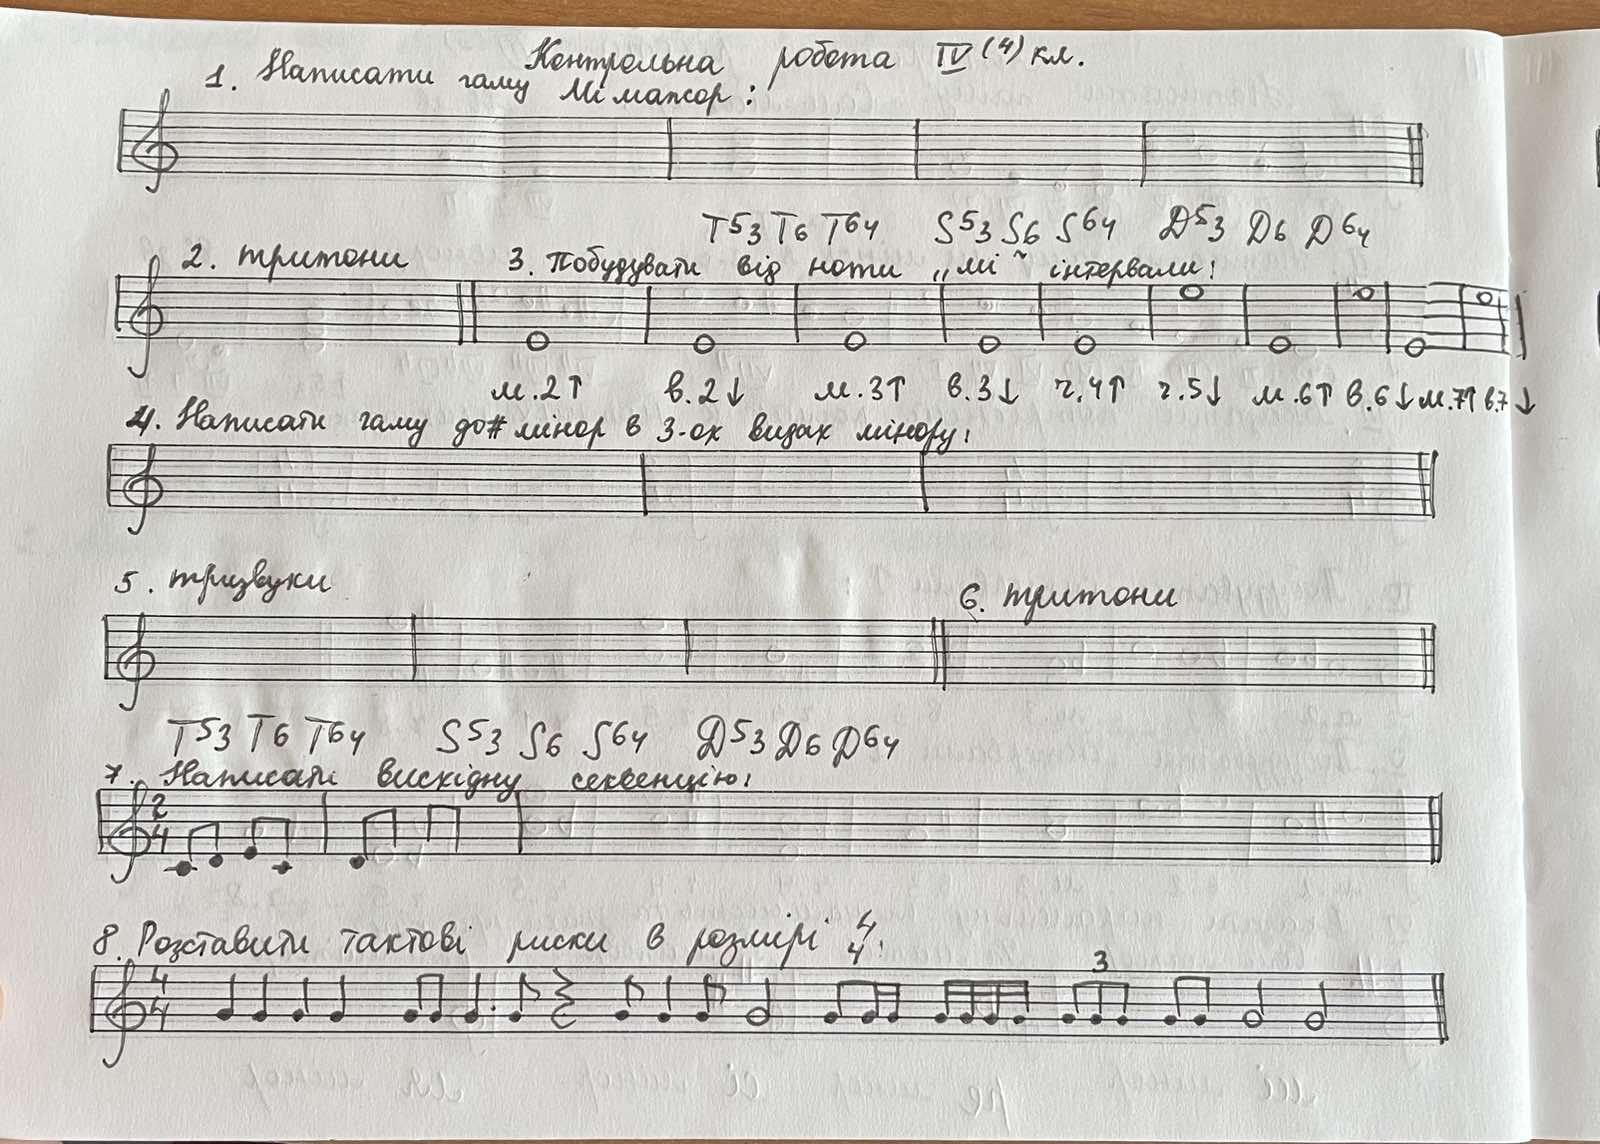 Контрольна робота IV (4) кл.
1. Написати гаму Мі мажор:
T53 T6 T64 S53 S6 S64 D53 D6 D64
2. тритони 3. Побудувати від ноти „мі" інтервали:
м.2↑ в.2↓ м.3↑ в.3↓ ч.4↑ ч.5↓ м.6↑ в.6↓ м.7↑ в.7↓
4. Написати гаму до# мінор в 3-ох видах мінору:
5. тризвуки 6. тритони
T53 T6 T64 S53 S6 S64 D53 D6 D64
7. Написати висхідну секвенцію:
2
4
8. Розставити тактові риски в розмірі 4/4:
3
4
4